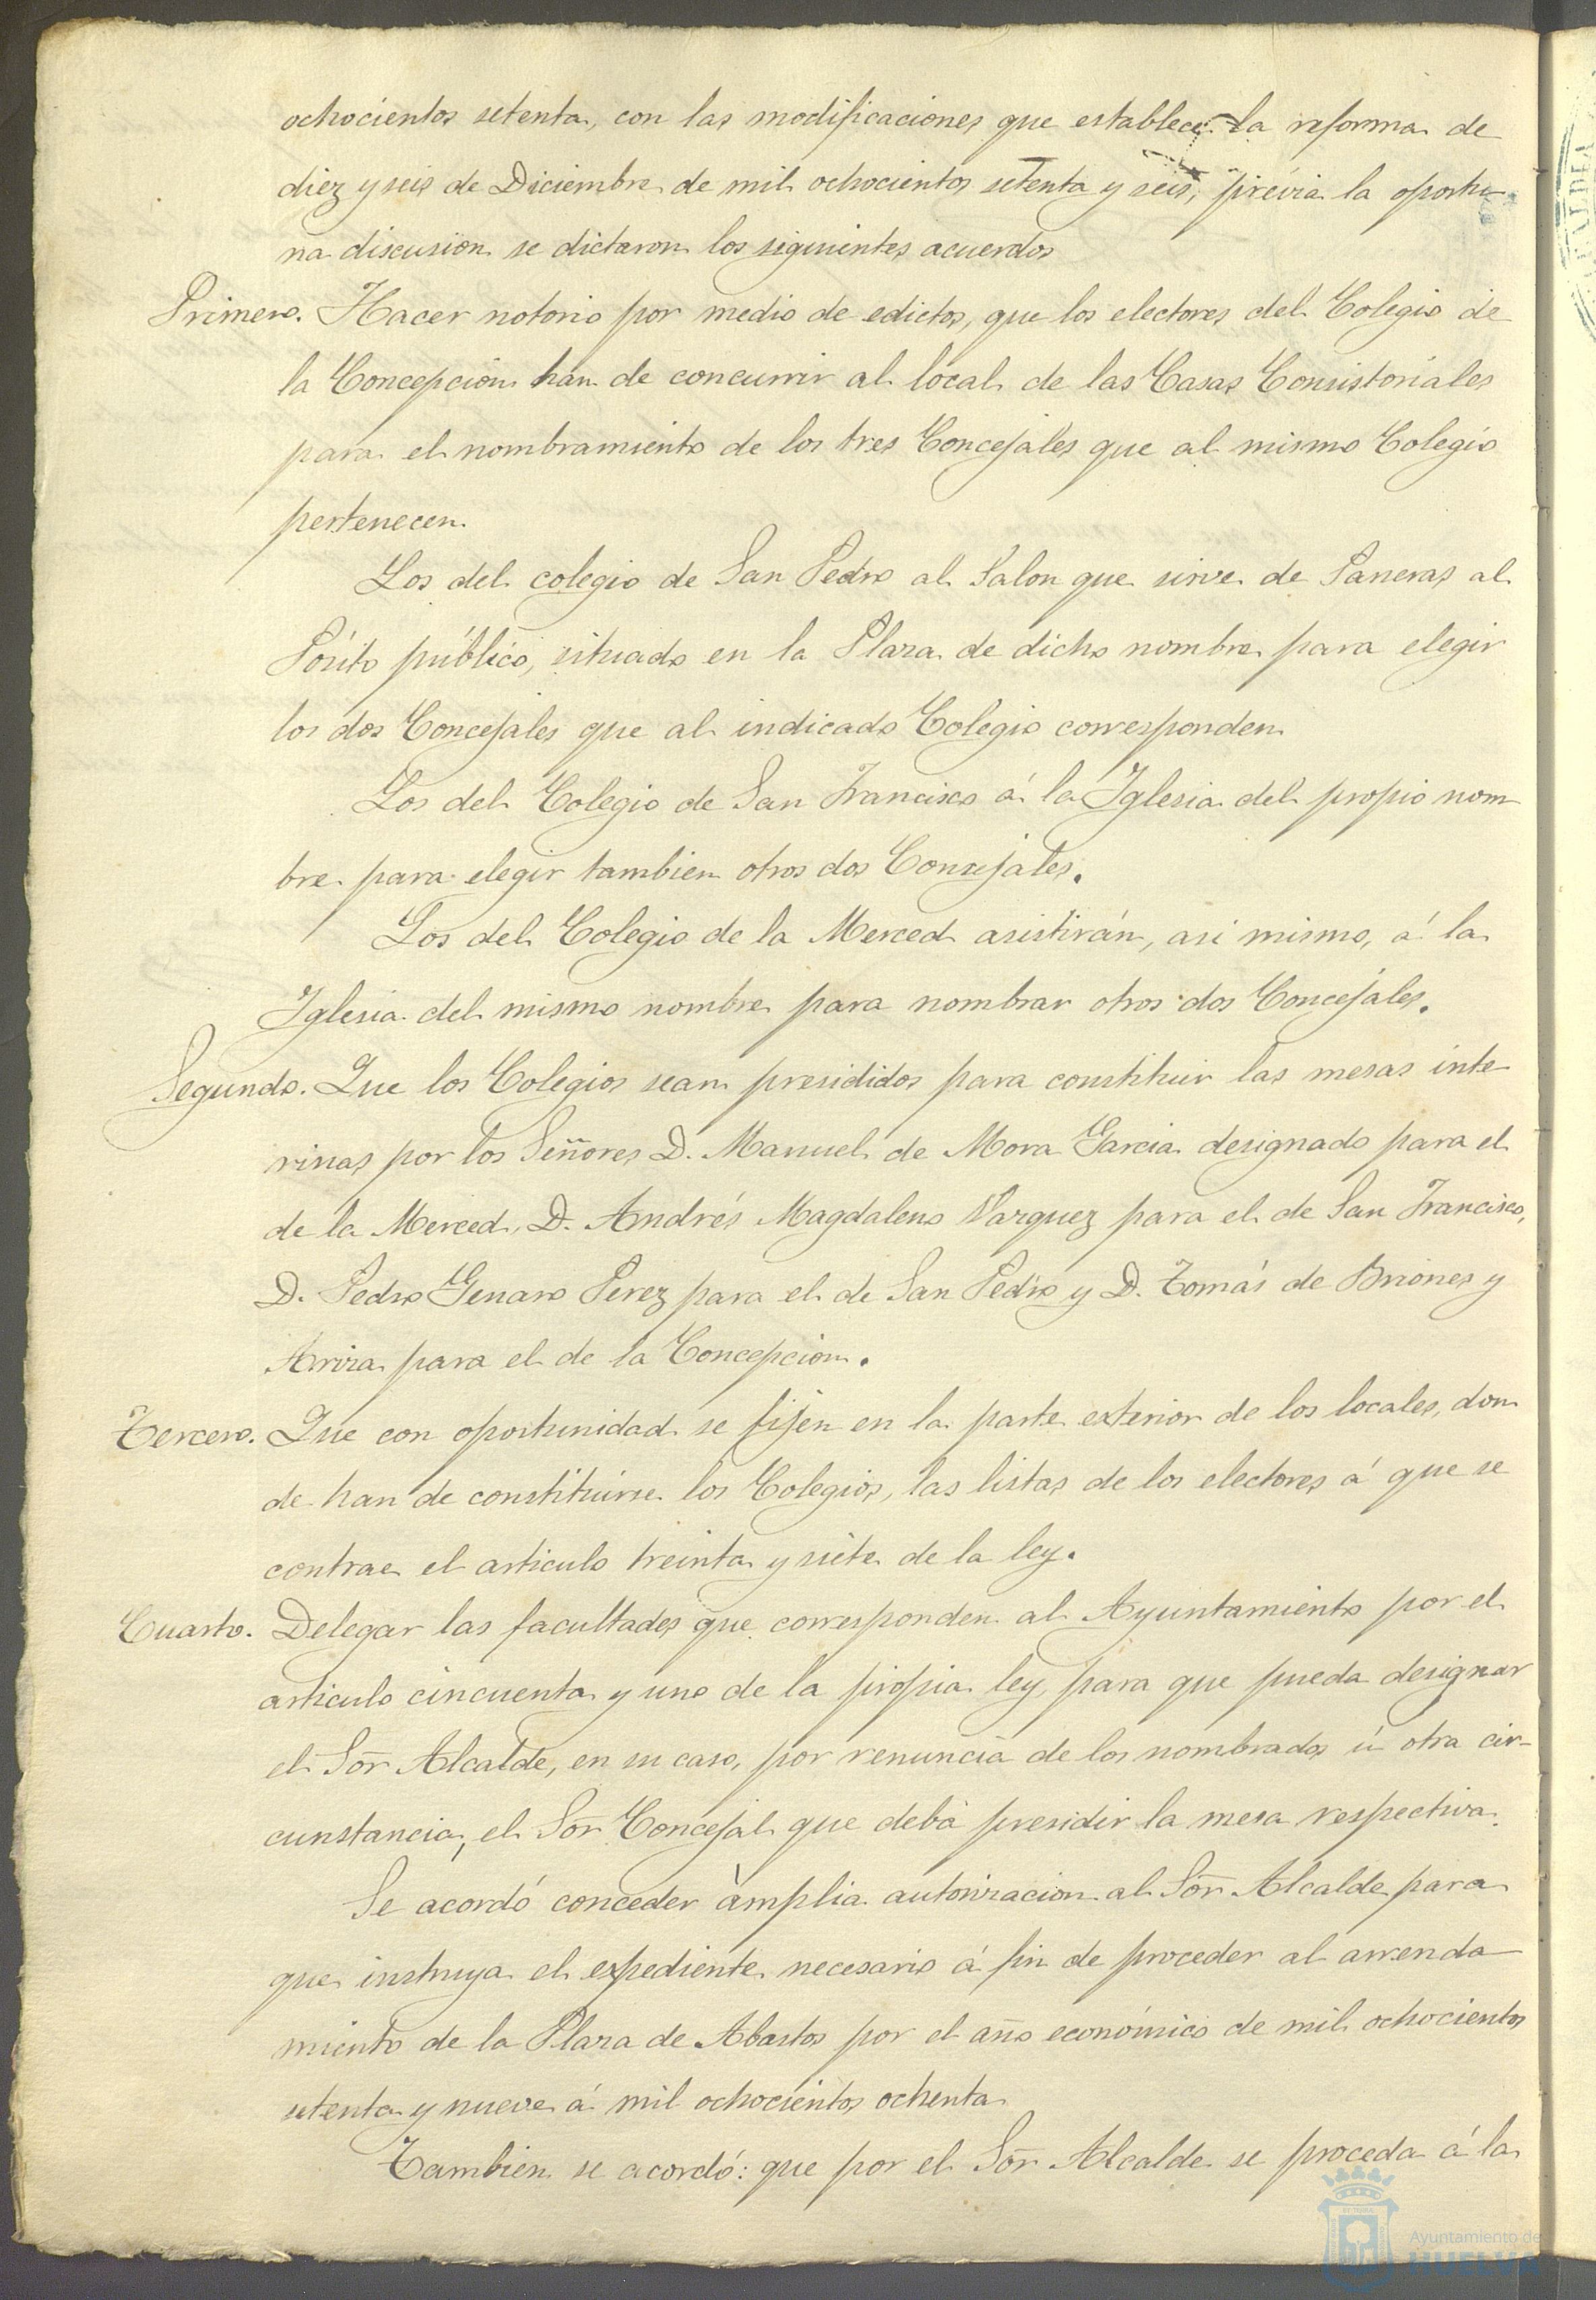 ochocientos setenta, con las modificaciones que establece la reforma de
diez y seis de Diciembre de mil ochocientos setenta y seis, prévia la oportu
na discusion se dictaron los siguientes acuerdos
Primero. Hacer notorio por medio de edictos, que los electores del Colegio de
la Concepcion han de concurrir al local de las Casas Consistoriales
para el nombramiento de los tres Concejales que al mismo Colegio
pertenecen.
Los del colegio de San Pedro al Salon que sirve de Paneras al
Pósito público, situado en la Plaza de dicho nombre para elegir
los dos Concejales que al indicado Colegio corresponden.
Los del Colegio de San Francisco á la Iglesia del propio nom
bre para elegir tambien otros dos Concejales.
Los del Colegio de la Merced asistirán, asi mismo, á la
Iglesia del mismo nombre para nombrar otros dos Concejales.
Segundo. Que los Colegios sean presididos para constituir las mesas inte
rinas por los Señores D. Manuel de Mora Garcia designado para el
de la Merced, D. Andrés Magdaleno Vazquez para el de San Francisco,
D. Pedro Genaro Perez para el de San Pedro y D. Tomás de Briones y
para el de la Concepcion.
Tercero. Que con oportunidad se fijen en la parte exterior de los locales, don
de han de constituirse los Colegios, las listas de los electores á que se
contrae el articulo treinta y siete de la ley.
Cuarto. Delegar las facultades que corresponden al Ayuntamiento por el
articulo cincuenta y uno de la propia ley, para que pueda designar
el Sor Alcalde, en su caso, por renuncia de los nombrados ú otra cir-
cunstancia, el Sor Concejal que deba presidir la mesa respectiva.
Se acordó conceder àmplia autorizacion al Sor Alcalde para
que instruya el expediente necesario á fin de proceder al arrenda
miento de la Plaza de Abastos por el año económico de mil ochocientos
setenta y nueve á mil ochocientos ochenta
Tambien se acordó: que por el Sor Alcalde se proceda á la
Ayuntamiento de
HUELVA